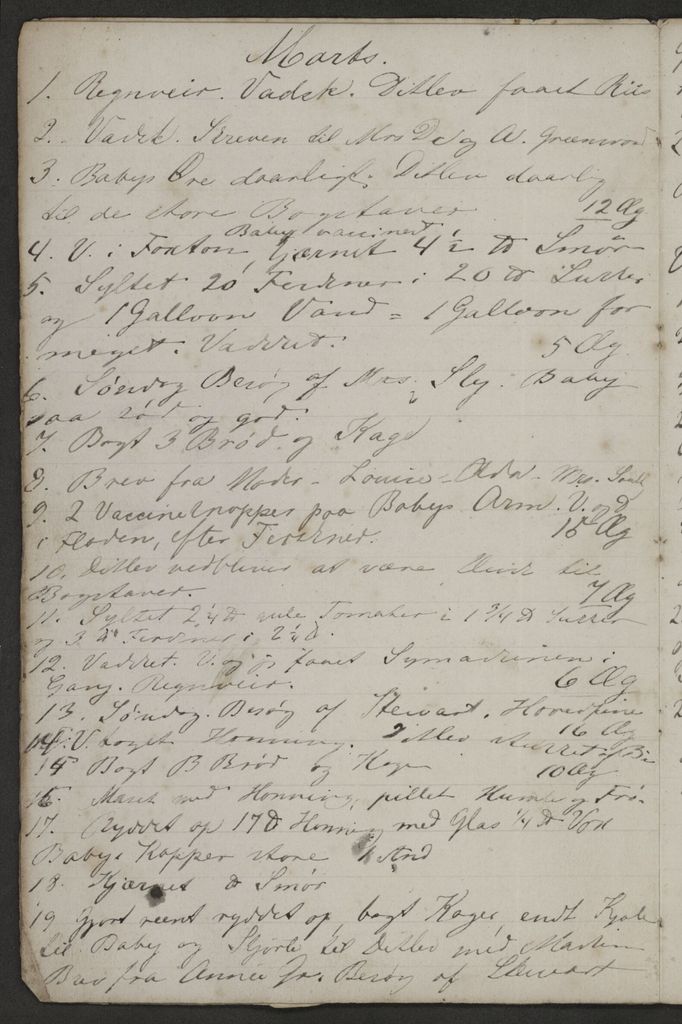 Marts.
1. Regnveir. Vadsk. Ditlev faaet Riis
2. Vadsk. Skreven til Mrs De og A. Greenwood
3. Babys Øre daarligt. Ditlev daarlig
til de store Bogstaver 12 Æg
Baby vaccinert
4. V. i Foxton, kjærnet 4½ ℔ Smør
5. Syltet 20 Ferskner i 20 ℔ Sukker
og 1 Galloon Vand = 1 Galloon for
meget. Vadsket. 5 Æg
6. Søndag Besøg af Mrs. Sly. Baby
saa sød og god.
7. Bagt 3 Brød og Kage
8. Brev fra Moder - Louise - Alda - Mrs.
9. 2 Vaccinekopper paa Babys Arm. V. og D
i Floden, efter Ferskner. 15 Æg
10. Ditlev vedbliver at være flink til
Bogstaver. 7 Æg
11. Syltet 2¼ ℔ gule Tomater i 1¾ ℔ Sukker
og 3 ℔ Ferskner i 2¼ ℔.
12. Vadsket. V. og jeg faaet Symaskinen i
Gang. Regnveir. 6 Æg
13. Søndag. Besøg af Stewart. Hovedpine
14. V. taget Honning. Ditlev stukket af Bi 16 Æg
15 Bagt 3 Brød og Kage 10 Æg
16. Maset med Honning, pillet Humle og Frø.
17. Ryddet op 17 ℔ Honning med Glas ¼ ℔ Vox
Babys Kopper store 1 And
18. Kjærnet ℔ Smør
19 Gjort reent ryddet op, bagt Kager, endt Kjole
til Baby og Skjorte til Ditlev med Maskin
Brev fra Annie Gr. Besøg af Stewart